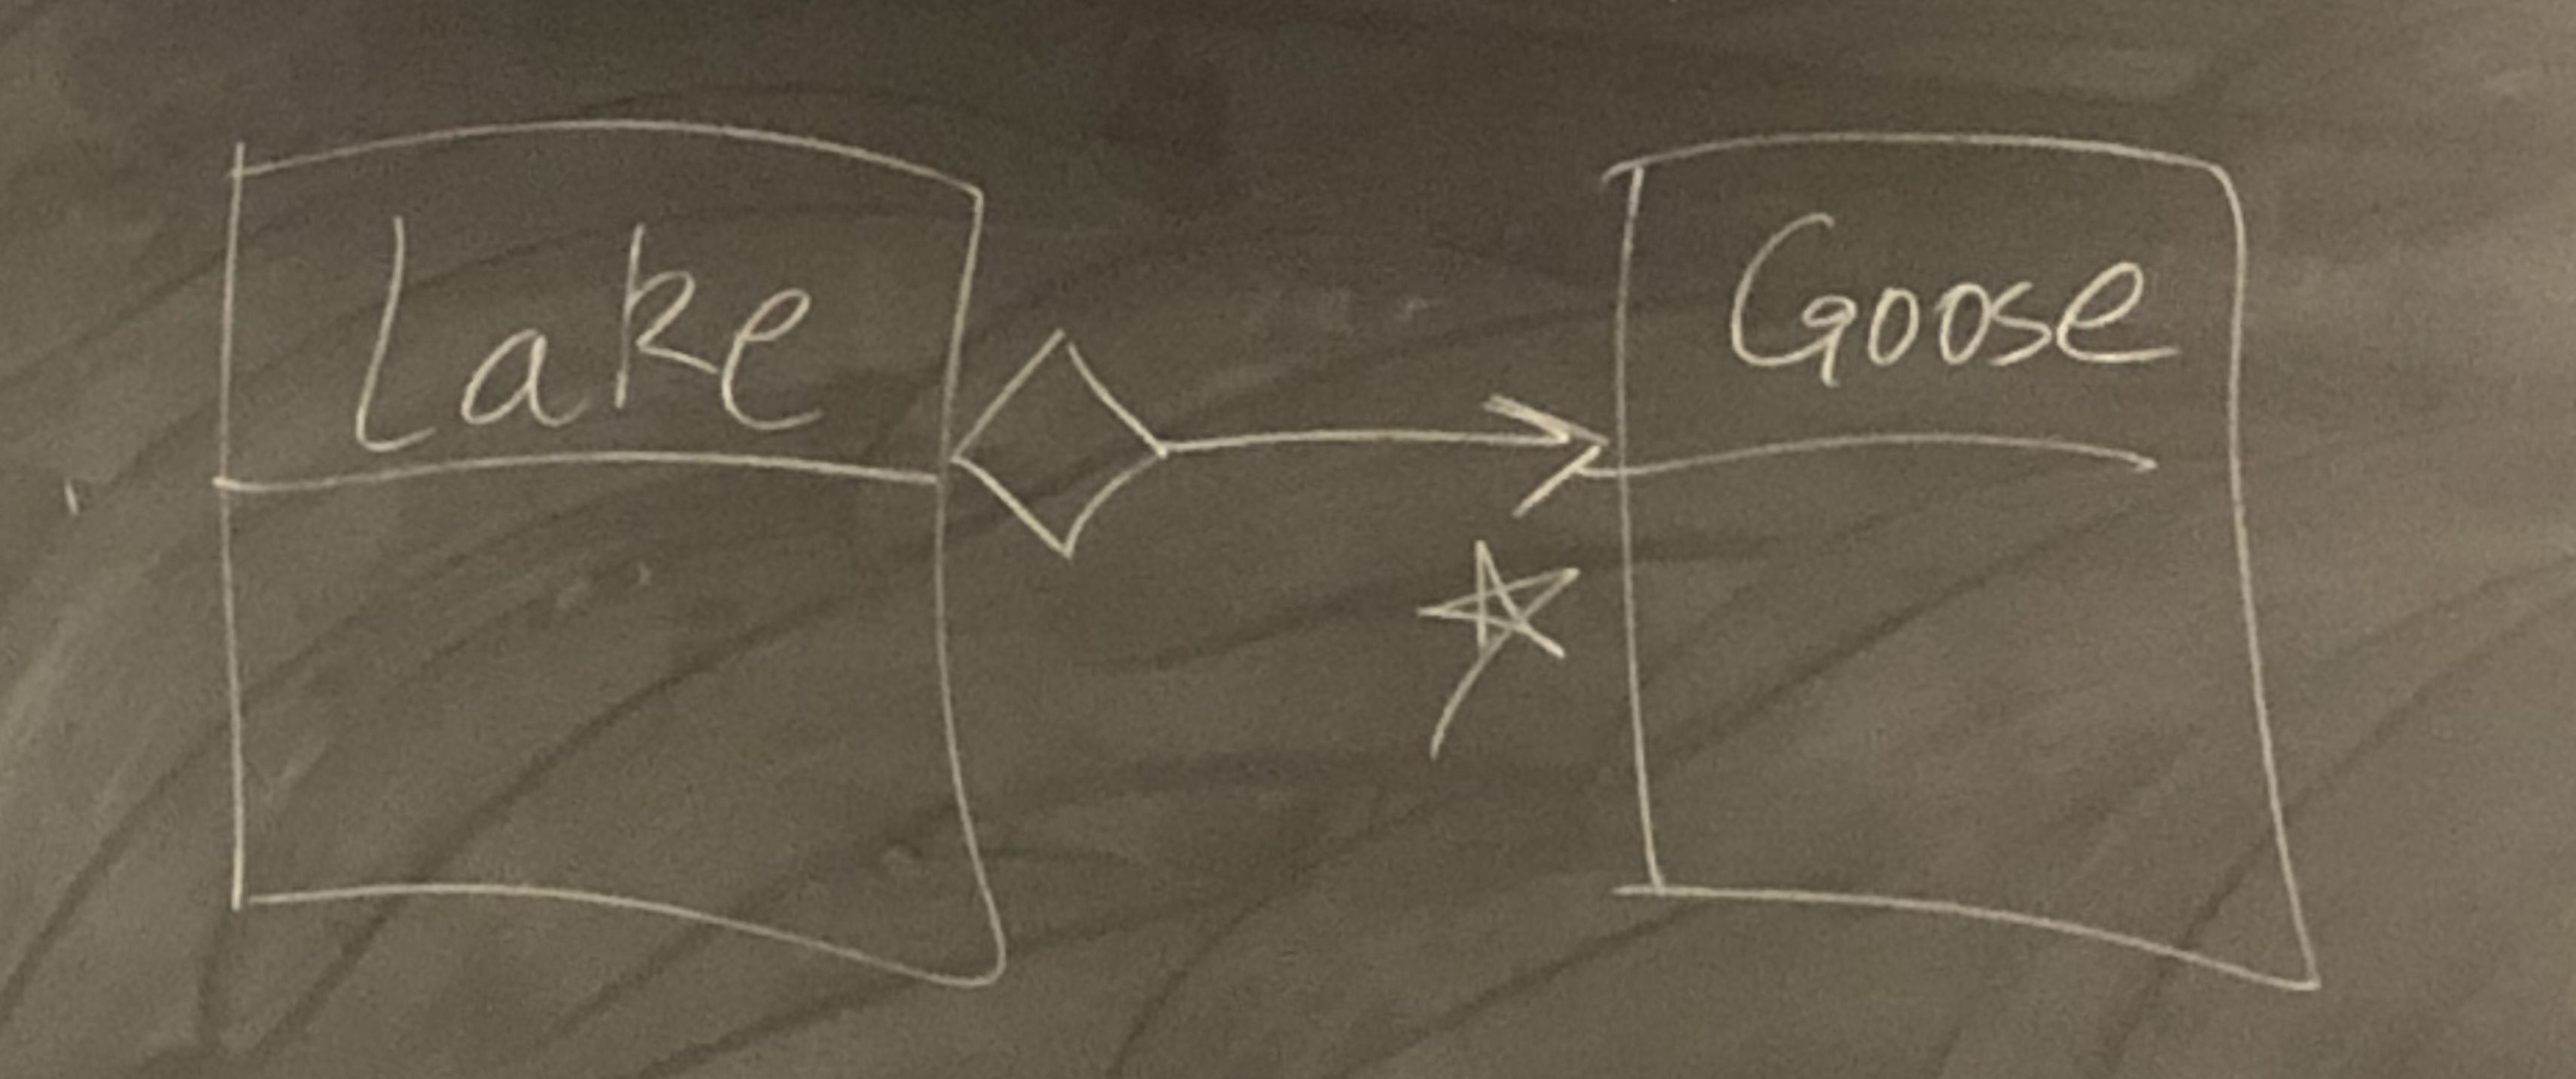 Lake
Goose
*